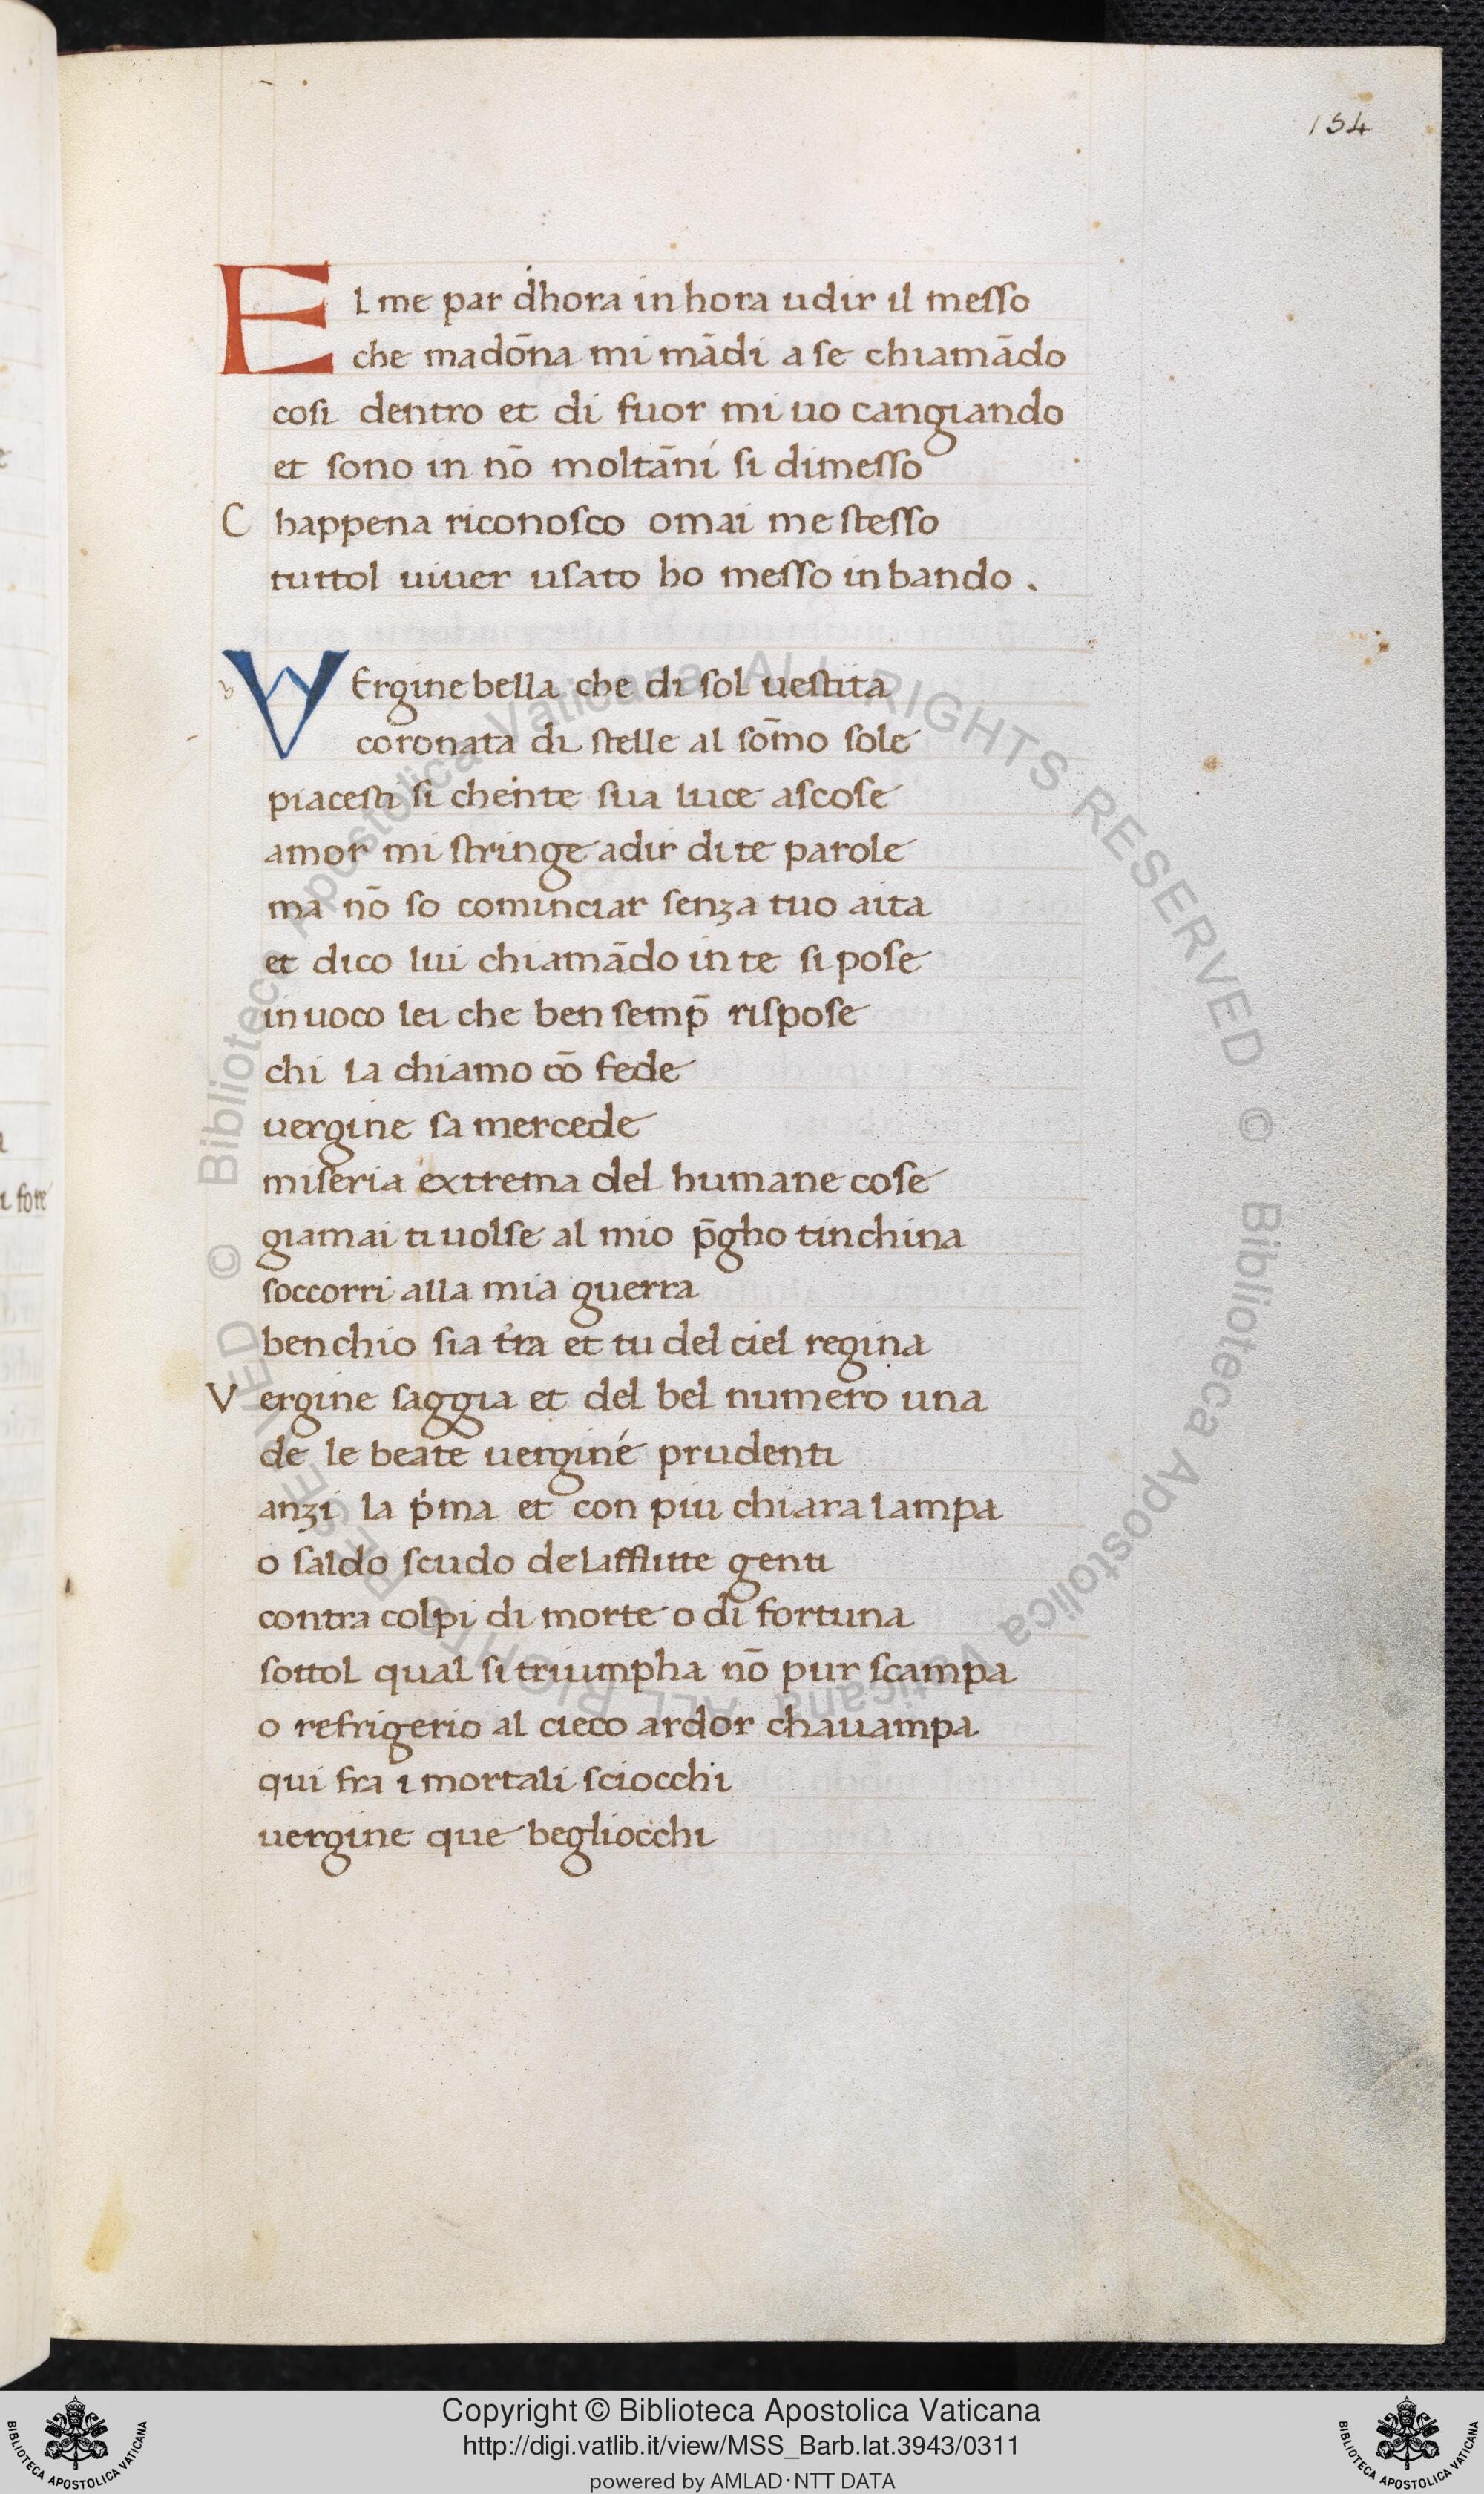 154
EL me par d'hora in hora udir il messo
che madōna mi mādi a se chiamādo
cosi dentro et di fuor mi uo cangiando
et sono in nō moltāni si dimesso
Chappena riconosco omai me stesso
tuttol uiuer usato ho messo in bando .
v
VErgine bella che di sol uestita
coronata di stelle al sōmo sole
piacesti si chente sua luce ascose
amor mi stringe a dir di te parole
ma nō so cominciar senza tuo aita
et dico lui chiamādo in te si pose
inuoco lei che ben semp̄ rispose
chi la chiamo cō fede
uergine sa mercede
miseria extrema del humane cose
giamai ti uolse al mio p̄gho tinchina
soccorri alla mia guerra
benchio sia t̄ra et tu del ciel regina
Vergine saggia et del bel numero una
de le beate uergine prudenti
anzi la pͥma et con piu chiara lampa
o saldo scudo de lafflitte genti
contra colpi di morte o di fortuna
sottol qual si triumpha nō pur scampa
o refrigerio al cieco ardor chauampa
qui fra i mortali sciocchi
uergine que begliocchi
fore
© Biblioteca Apostolica Vaticana ALL RIGHTS RESERVED © Biblioteca Apostolica Vaticana ALL RIGHTS RESERVED
Copyright © Biblioteca Apostolica Vaticana
http://digi.vatlib.it/view/MSS_Barb.lat.3943/0311
powered by AMLAD·NTT DATA
BIBLIOTECA APOSTOLICA VATICANA
BIBLIOTECA APOSTOLICA VATICANA